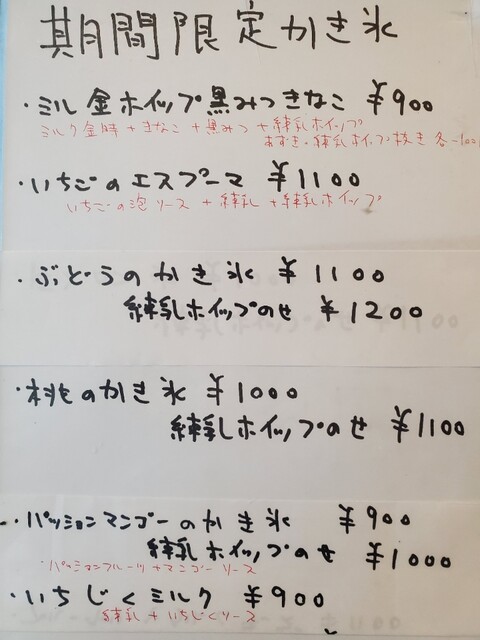 期間限定かき氷
・ミル金ホイップ黒みつきなこ ¥900
ミルク金時+きなこ+黒みつ+練乳ホイップ
あずき・練乳ホイップ抜き各-100円
・いちごのエスプーマ ¥1100
いちごの泡ソース+練乳+練乳ホイップ
・ぶどうのかき氷 ¥1100
練乳ホイップのせ ¥1200
・桃のかき氷 ¥1000
練乳ホイップのせ ¥1100
・パッションマンゴーのかき氷 ¥900
練乳ホイップのせ ¥1000
パッションフルーツ+マンゴーソース
・いちじくミルク ¥900
練乳+いちじくソース